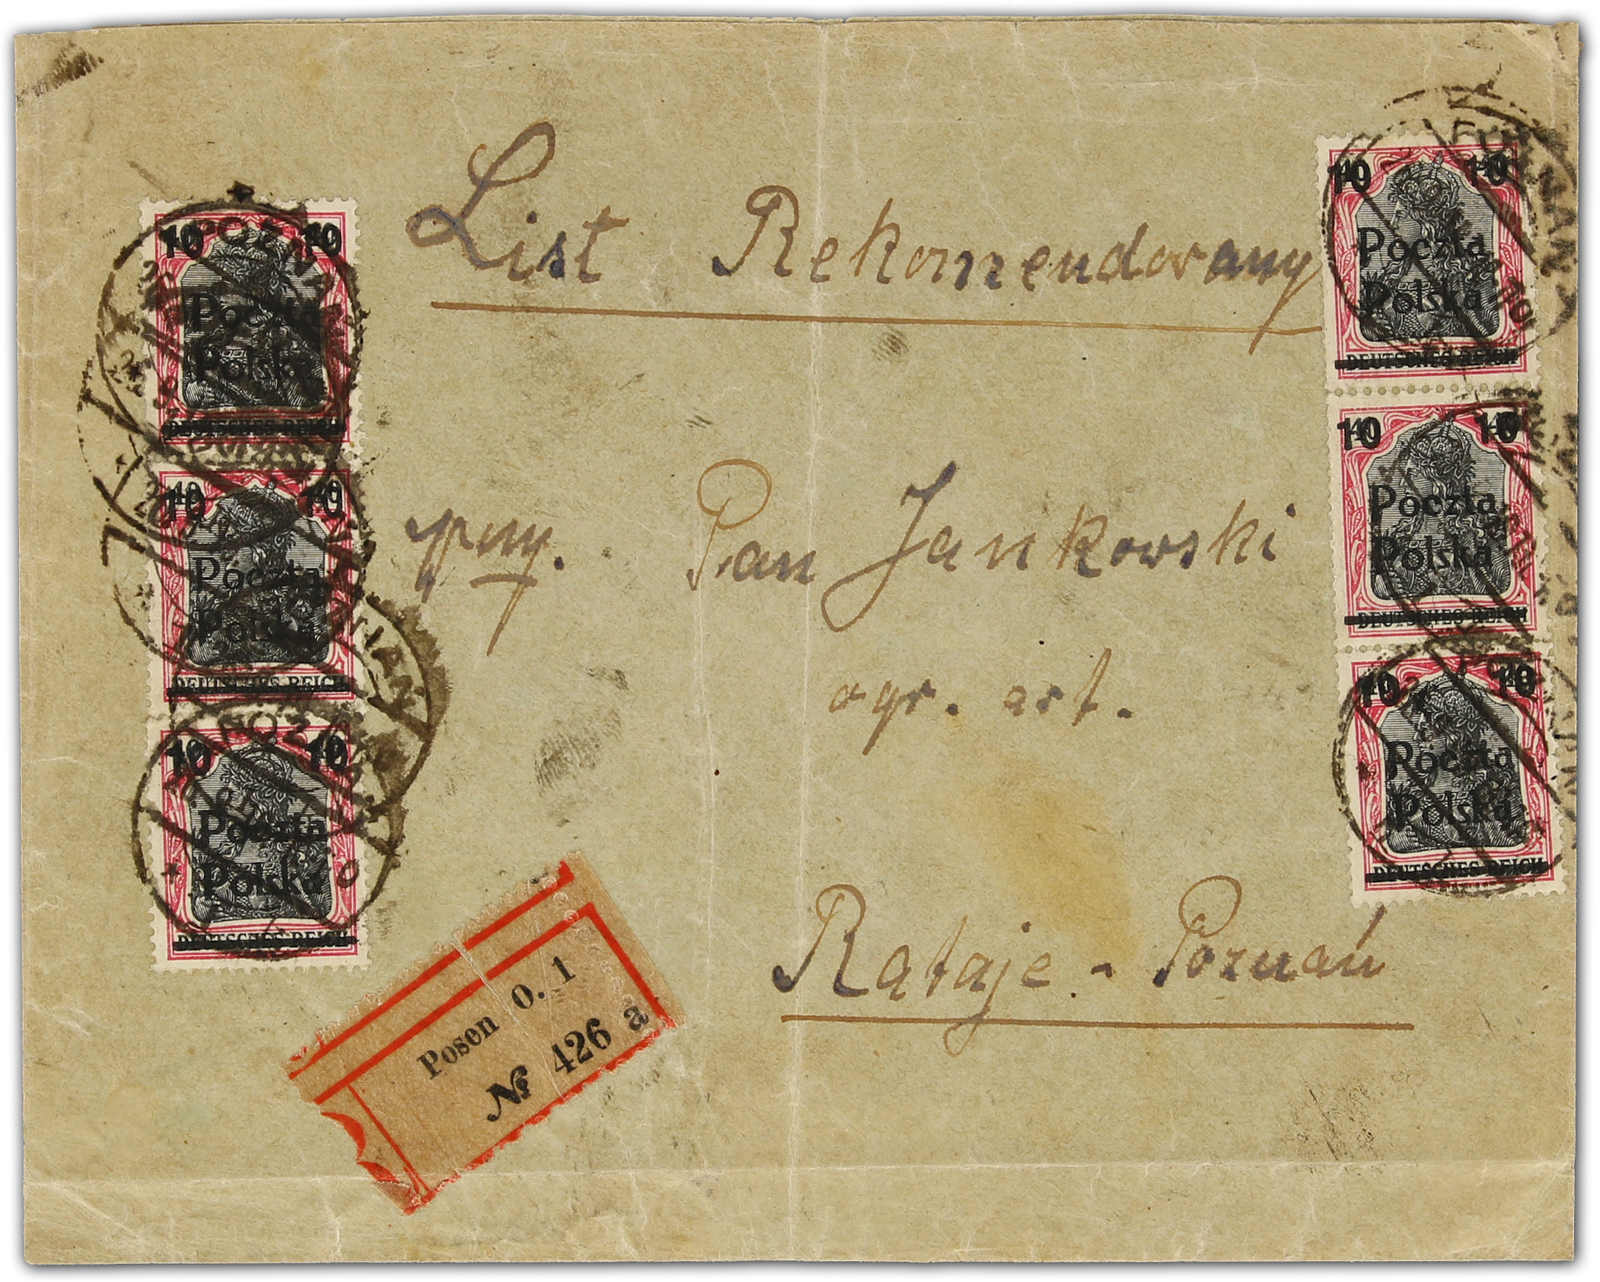 List Rekomendowany
Pan Jankowski
ogr. art.
Rataje - Poznań
Posen O. 1
№ 426 a
10 10
Poczta
Polska
DEUTSCHES REICH
10 10
Poczta
Polska
DEUTSCHES REICH
10 10
Poczta
Polska
DEUTSCHES REICH
10 10
Poczta
Polska
DEUTSCHES REICH
10 10
Poczta
Polska
DEUTSCHES REICH
10 10
Poczta
Polska
DEUTSCHES REICH